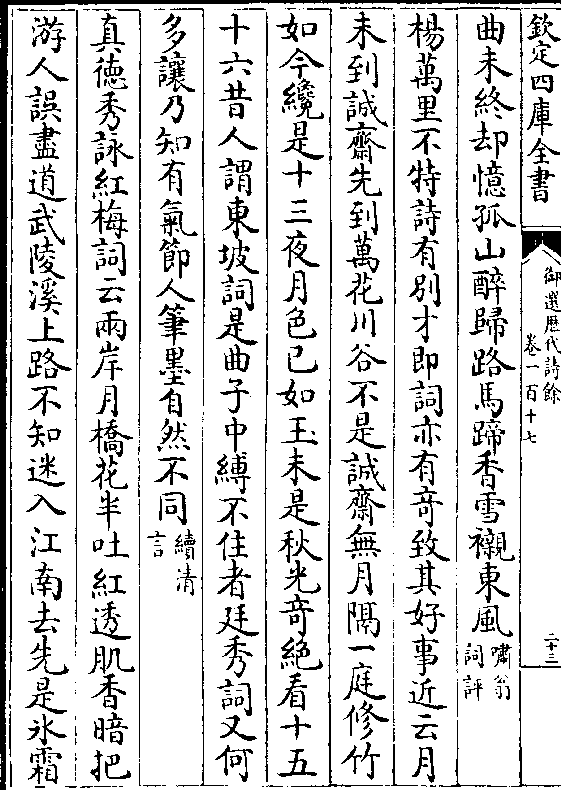 欽定四庫全書
御選歴代詩餘
卷一百十七
二十三
曲未終却憶孤山醉歸路馬蹄香雪襯東風嘯翁詞評
楊萬里不特詩有别才即詞亦有竒致其好事近云月
未到誠齋先到萬花川谷不是誠齋無月隔一庭修竹
如今纔是十三夜月色已如玉未是秋光竒絶看十五
十六昔人謂東坡詞是曲子中縛不住者廷秀詞又何
多讓乃知有氣節人筆墨自然不同續清言
真徳秀詠紅梅詞云兩岸月橋花半吐紅透肌香暗把
游人誤盡道武陵溪上路不知迷入江南去先是氷霜